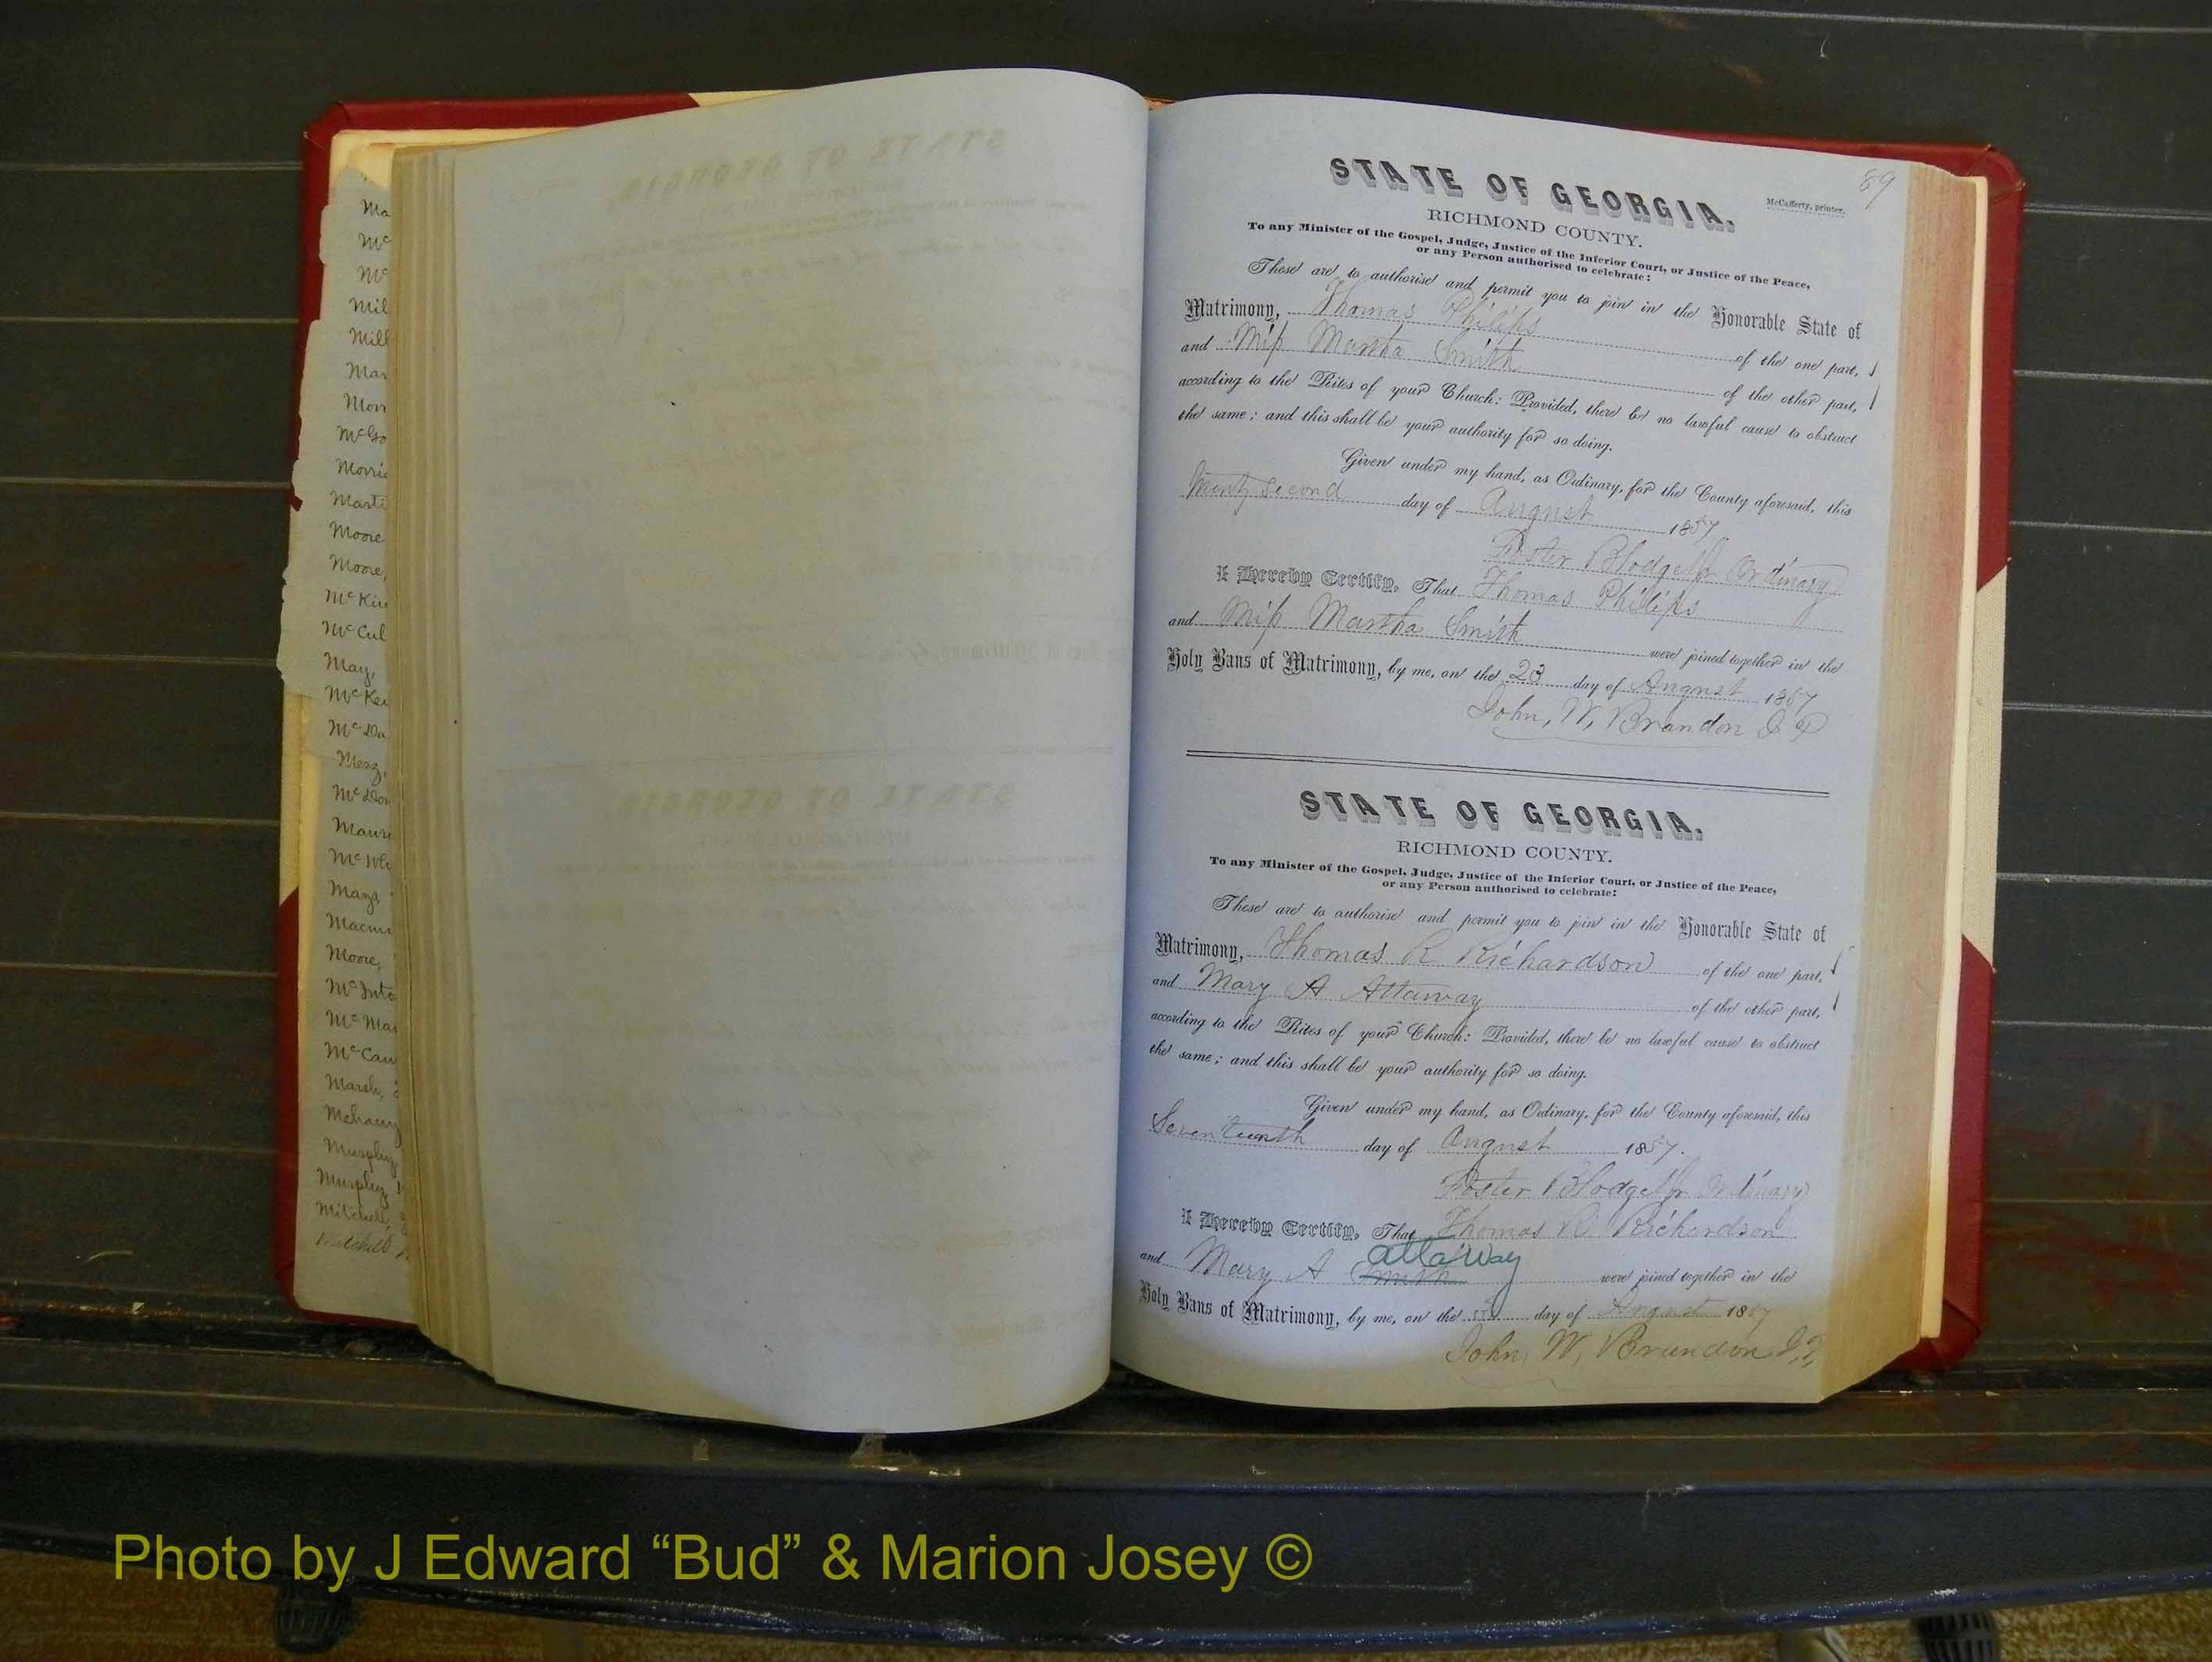 Ma
Mc
Mc
Mil
Mill
Mar
Morr
McGo
Morri
Marti
Moore
Moore,
McKin
McCul
May,
McKe
McDa
Merz,
McDon
Maur
McWh
Mays,
Macmu
Moore,
McInt
McMa
McCau
Marsh,
Mehaery
Murphy
Murphy,
Mitchell,
Mitchell
89
McCafferty, printer.
STATE OF GEORGIA.
RICHMOND COUNTY.
To any Minister of the Gospel, Judge, Justice of the Inferior Court, or Justice of the Peace,
or any Person authorised to celebrate:
These are to authorise and permit you to join in the Honorable State of
Matrimony, Thomas Philips of the one part,
and Miss Martha Smith of the other part,
according to the Rites of your Church: Provided, there be no lawful cause to obstruct
the same; and this shall be your authority for so doing.
Given under my hand, as Ordinary, for the County aforesaid, this
Twenty second day of August 1857
Foster Blodget Jr Ordinary
I Hereby Certify, That Thomas Philips
and Miss Martha Smith were joined together in the
Holy Bans of Matrimony, by me, on the 23 day of August 1857
John, W, Brandon J P
STATE OF GEORGIA.
RICHMOND COUNTY.
To any Minister of the Gospel, Judge, Justice of the Inferior Court, or Justice of the Peace,
or any Person authorised to celebrate:
These are to authorise and permit you to join in the Honorable State of
Matrimony, Thomas R Richardson of the one part,
and Mary A Attaway of the other part,
according to the Rites of your Church: Provided, there be no lawful cause to obstruct
the same; and this shall be your authority for so doing.
Given under my hand, as Ordinary, for the County aforesaid, this
Seventeenth day of August 1857.
Foster Blodget Jr Ordinary
I Hereby Certify, That Thomas R Richardson
attaway
and Mary A Smith were joined together in the
Holy Bans of Matrimony, by me, on the day of August 1857
John, W, Brandon J.P,
Photo by J Edward “Bud” & Marion Josey ©